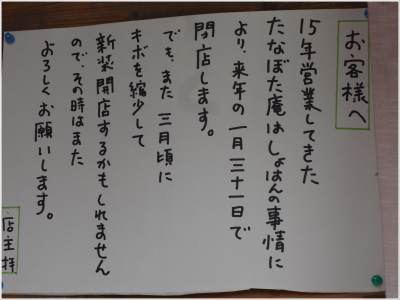 お客様へ
15年営業してきた
たなぼた庵はしょはんの事情に
より、来年の一月三十一日で
閉店します。
でも、また三月頃に
キボを縮少して
新装開店するかもしれません
ので、その時はまた
よろしくお願いします。
店主拝